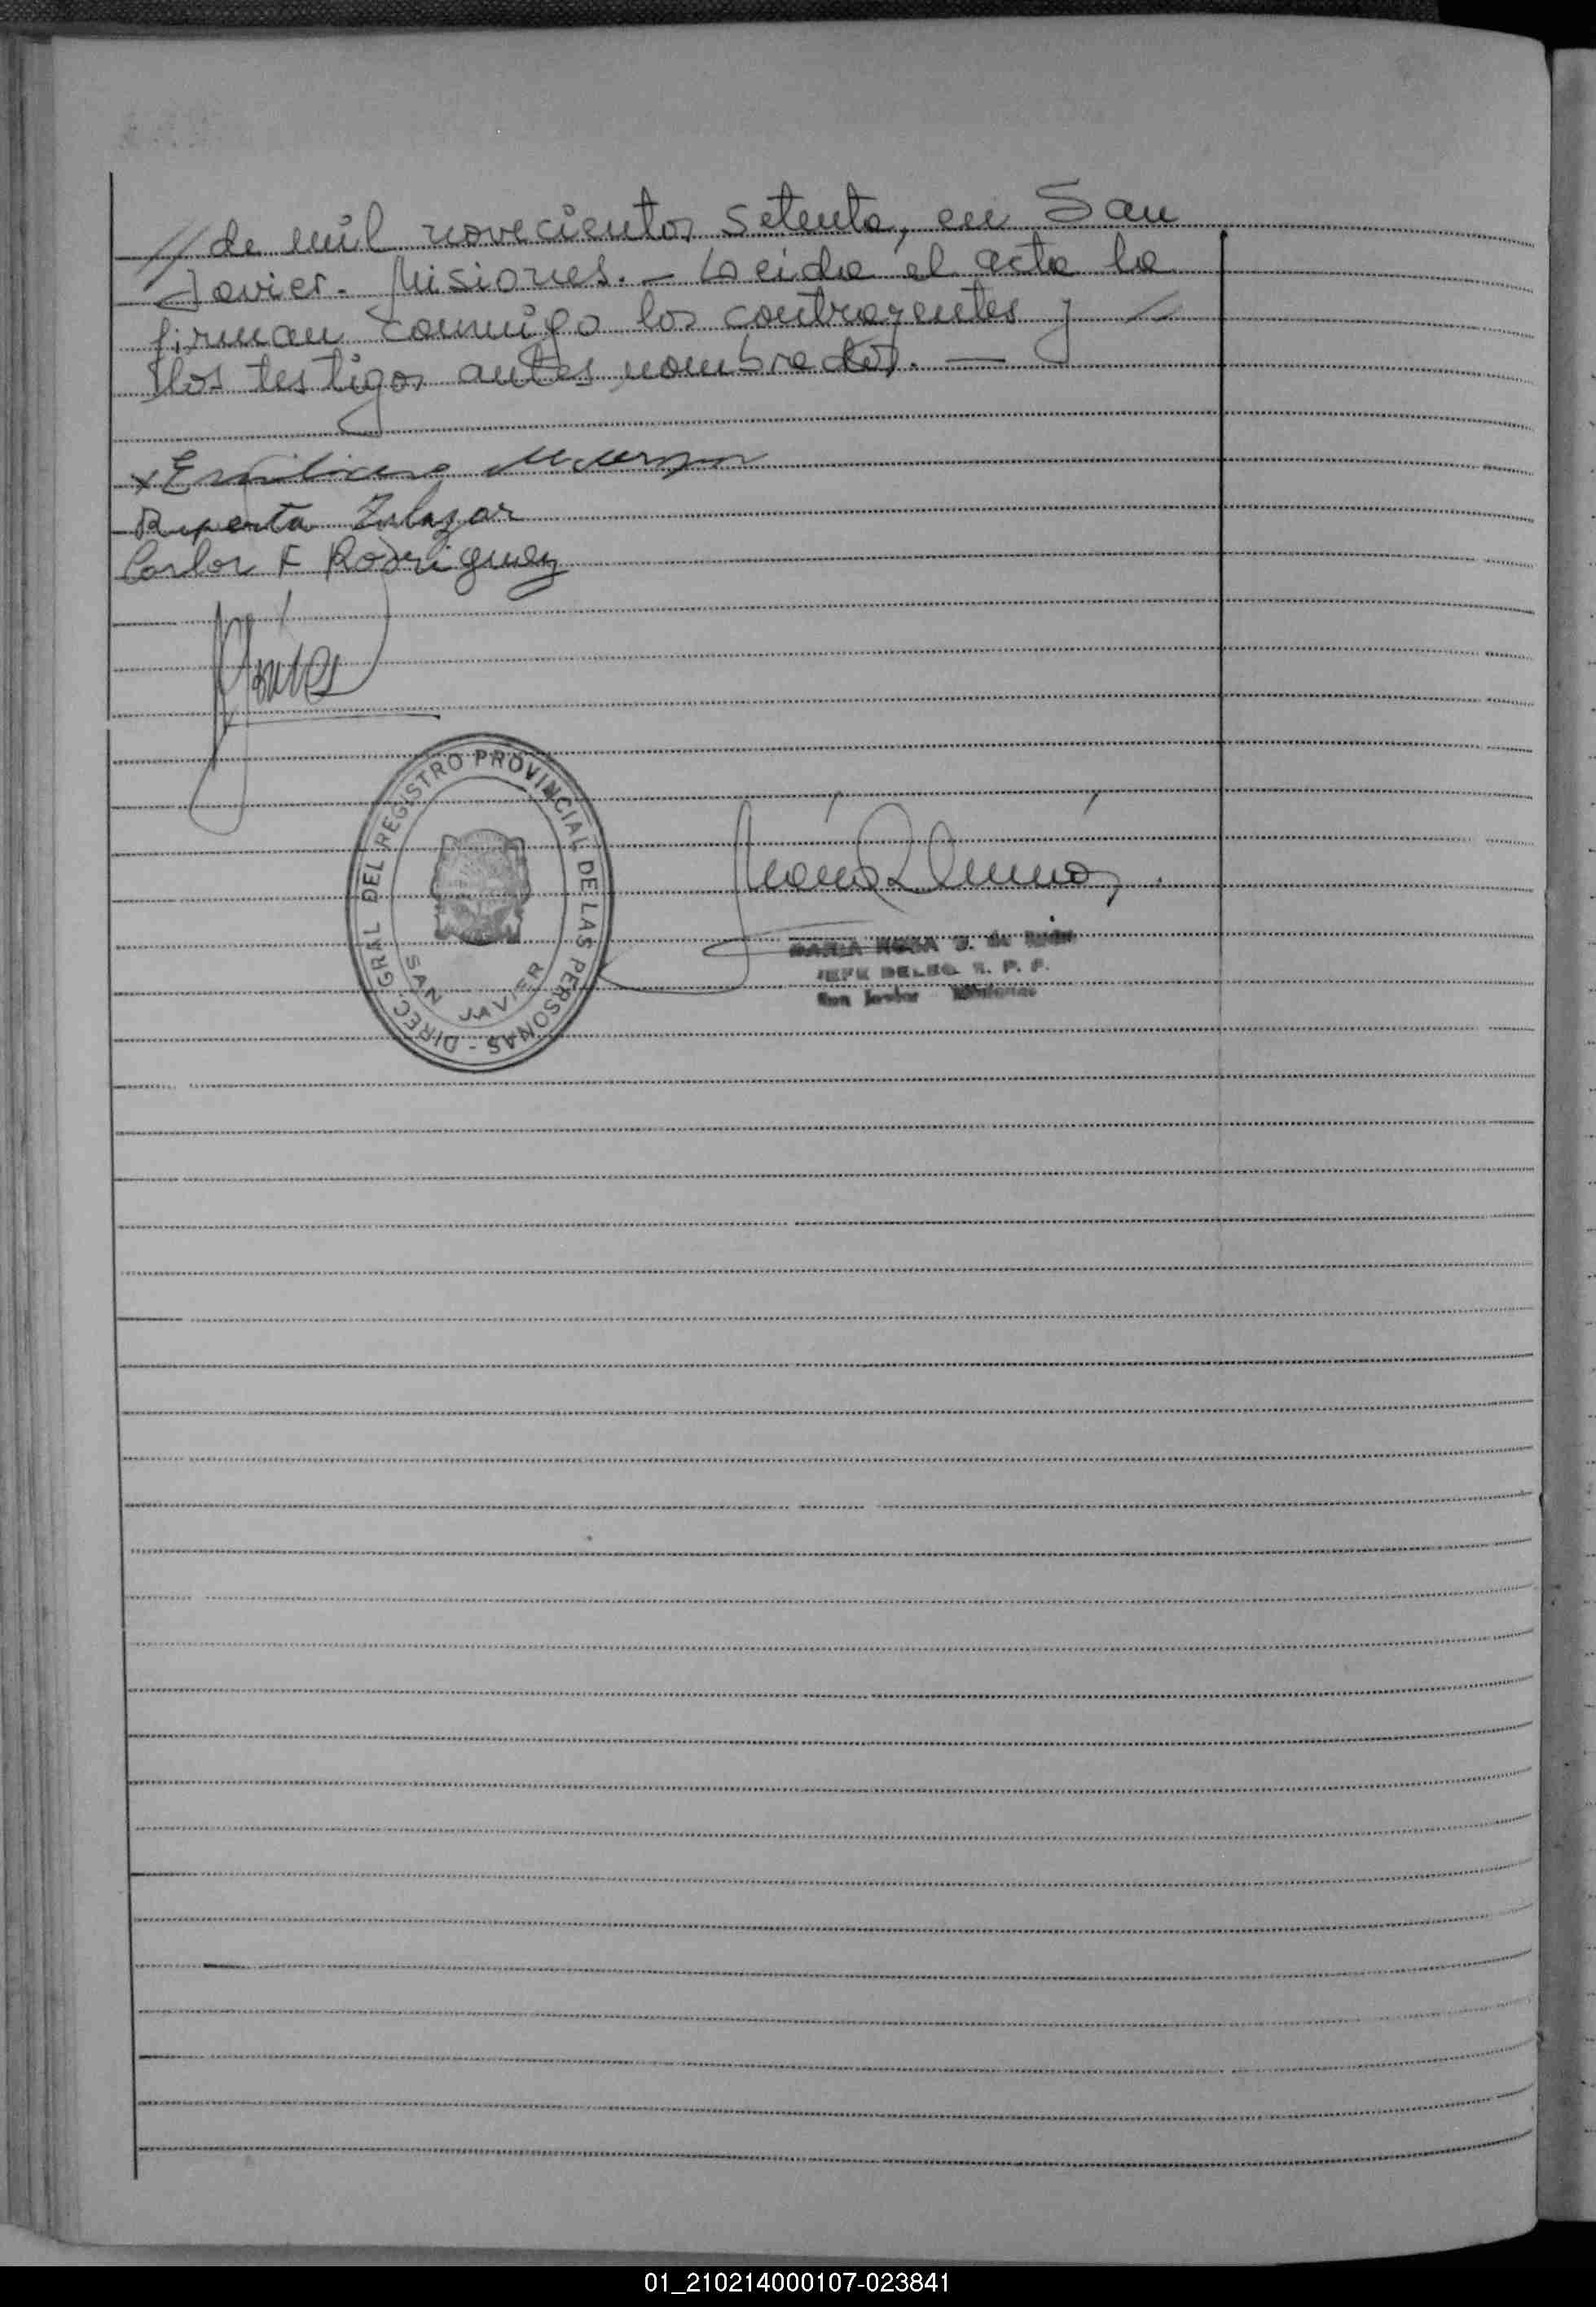 // de mil novecientos setenta, en San
Javier. Misiones. - Leida el acta la
firman conmigo los contrayentes y //
//los testigos antes nombrados. —
x Emiliano
Ruperta Zalazar
Carlos F Rodriguez
DIREC. GRAL DEL REGISTRO PROVINCIAL DE LAS PERSONAS -
SAN JAVIER
MARIA ROSA de
JEFE DELEG. R. P. P.
San Javier Misiones
01_210214000107-023841